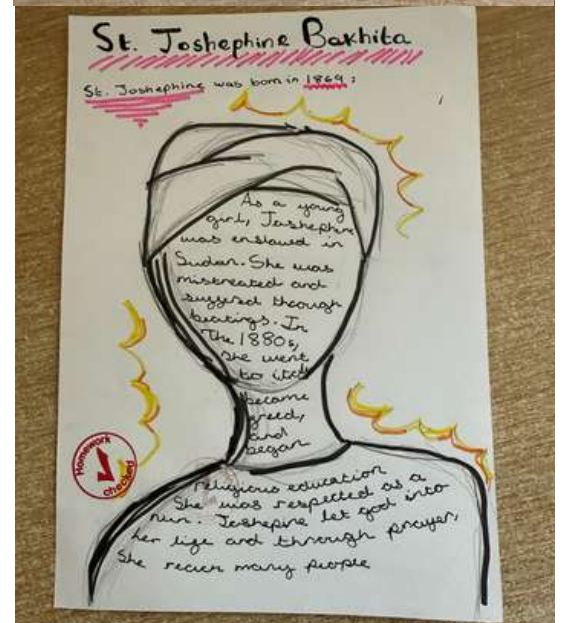 St. Joshephine Bakhita
St. Joshephine was born in 1869;
As a young
girl, Joshephine
was enslaved in
Sudan. She was
mistreated and
suffered through
beatings. In
The 1880s,
she went
to
became
freed,
and
began
religious education
She was respected as a
nun. Joshepine let god into
her life and through prayer,
She many people
Homework
checked